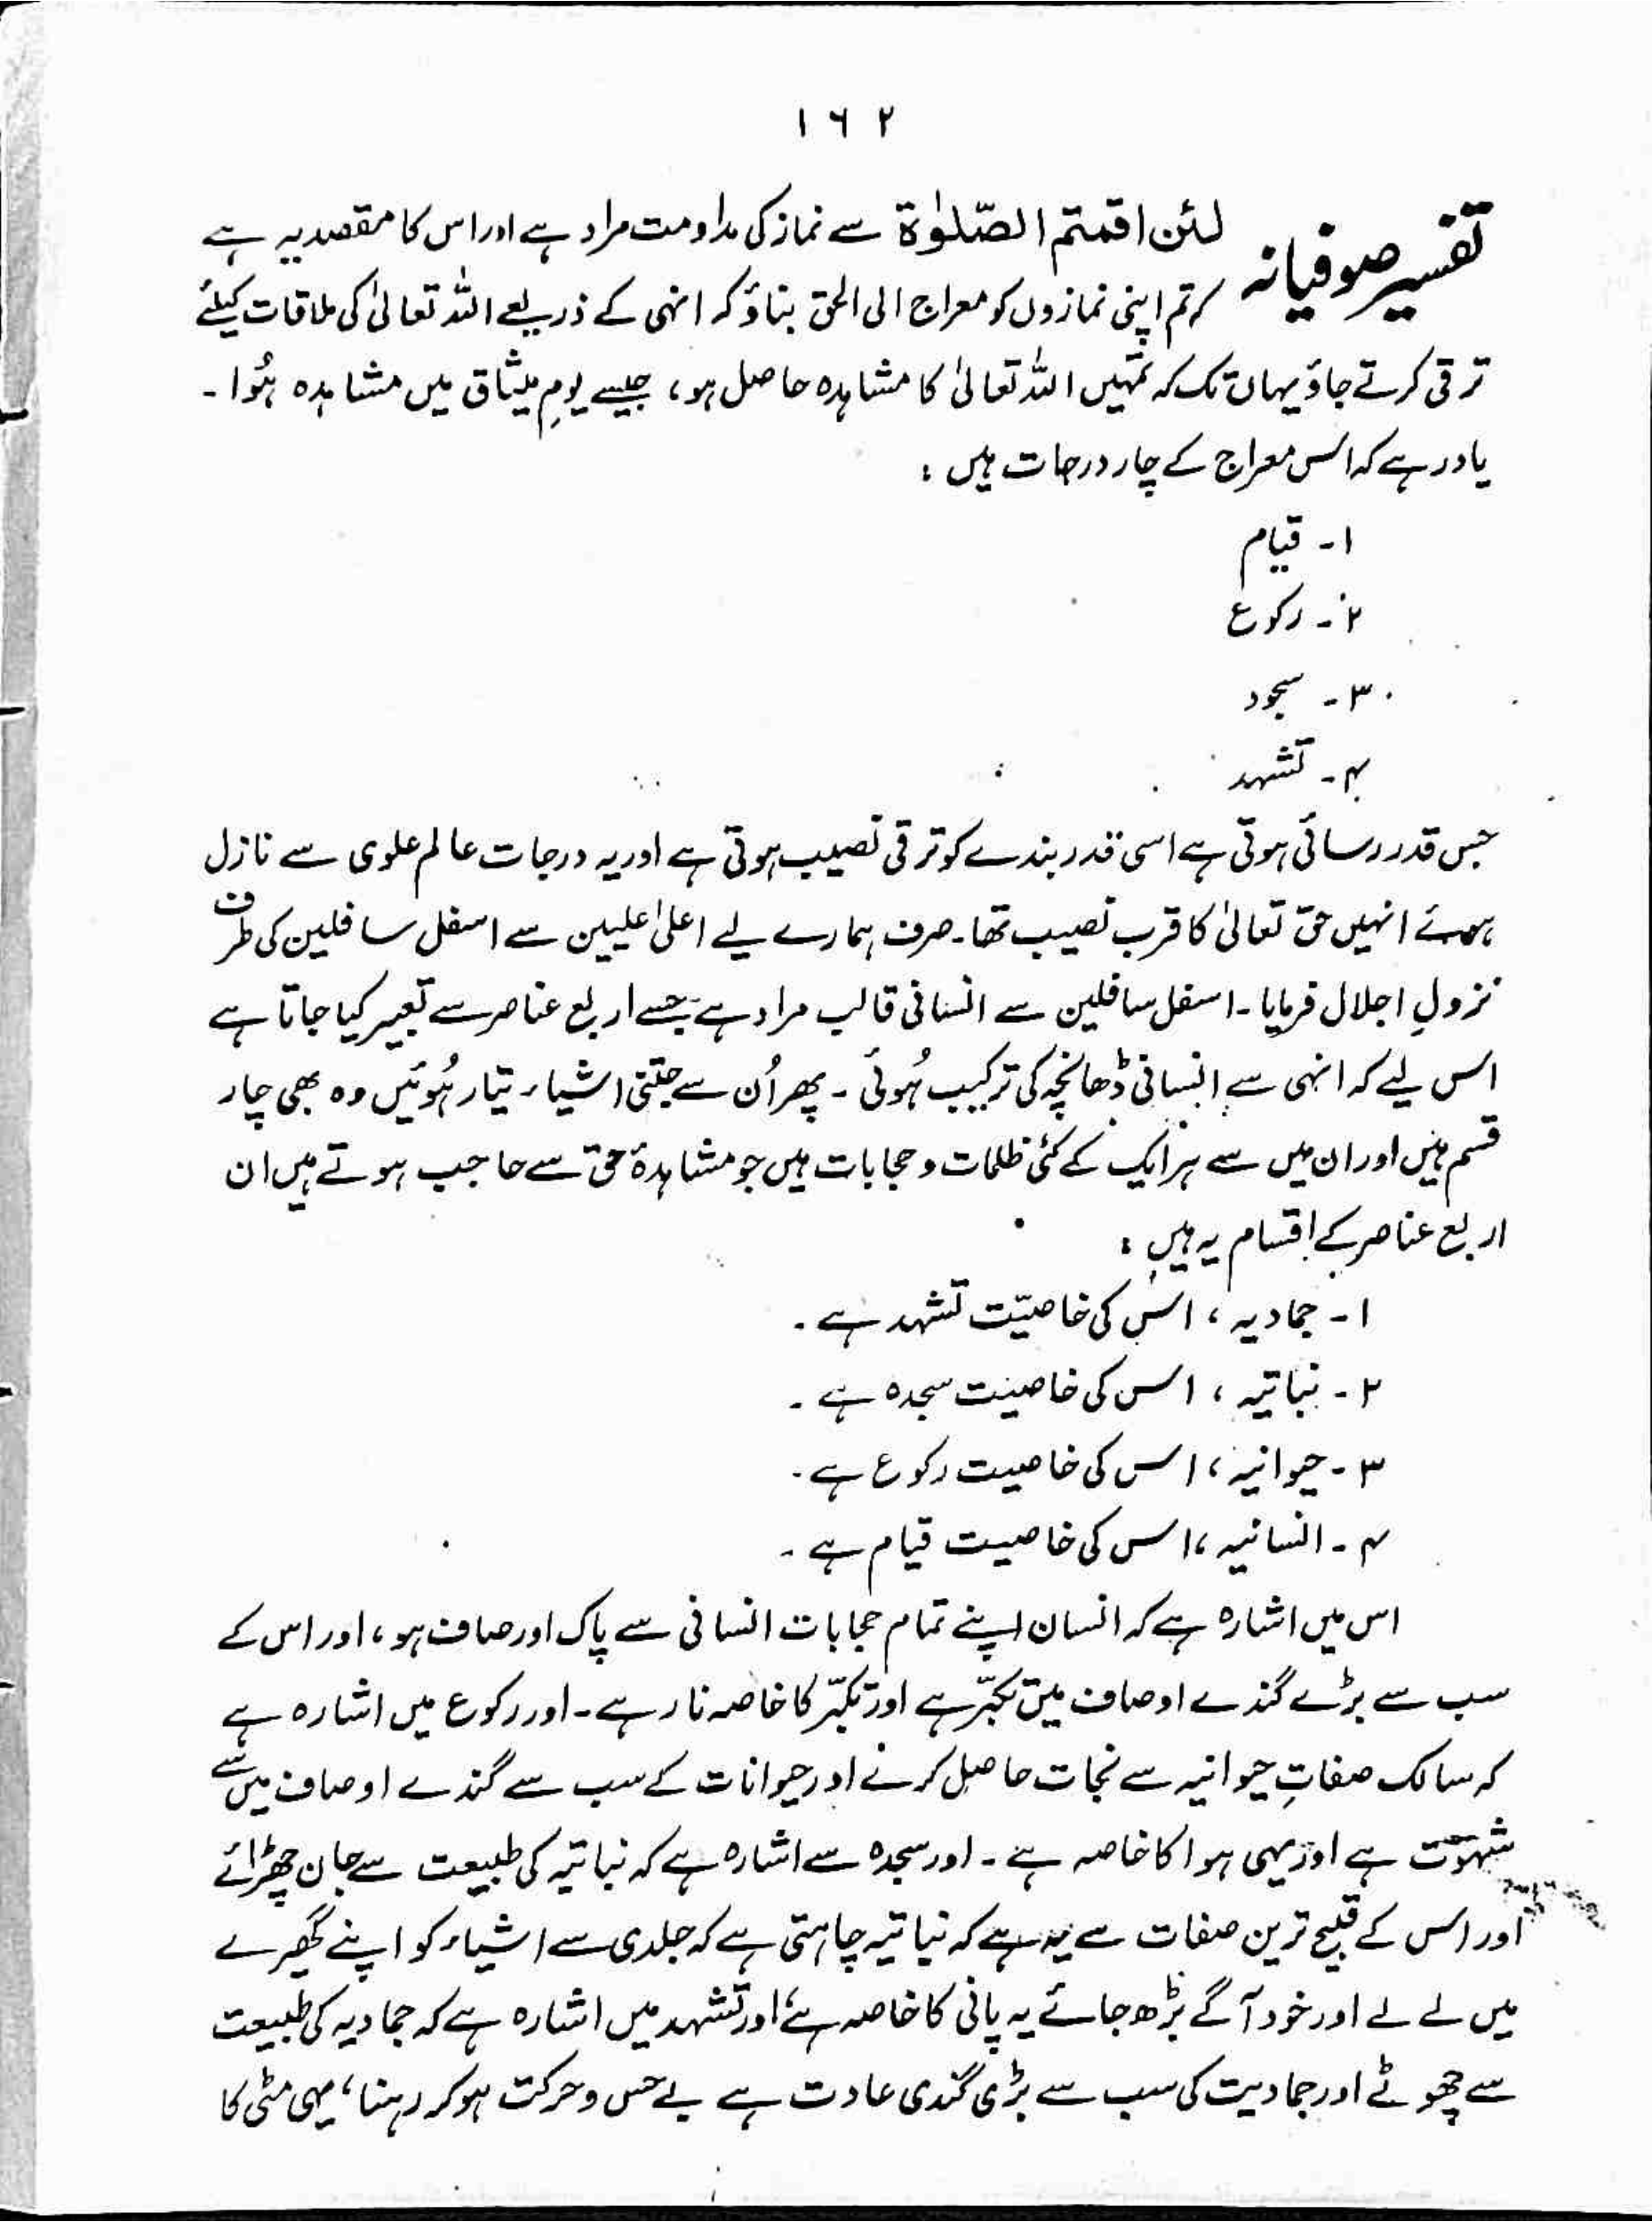 ۱۶۲
تفسیر صوفیانہ لئن اقمتم الصّلوٰۃ سے نماز کی مداومت مراد ہے اور اس کا مقصد یہ ہے
کہ تم اپنی نمازوں کو معراج الی الحق بناؤ کہ انہی کے ذریعے اللہ تعالیٰ کی ملاقات کیلئے
ترقی کرتے جاؤ یہاں تک کہ تمہیں اللہ تعالیٰ کا مشاہدہ حاصل ہو، جیسے یومِ میثاق میں مشاہدہ ہُوا۔
یاد رہے کہ اس معراج کے چار درجات ہیں :
۱۔ قیام
۲۔ رکوع
۳۔ سجود
۴۔ تشہد
جس قدر رسائی ہوتی ہے اسی قدر بندے کو ترقی نصیب ہوتی ہے اور یہ درجات عالم علوی سے نازل
ہوئے انہیں حق تعالیٰ کا قرب نصیب تھا۔ صرف ہمارے لیے اعلیٰ علیین سے اسفل سافلین کی طرف
نزولِ اجلال فرمایا۔ اسفل سافلین سے انسانی قالب مراد ہے جسے اربع عناصر سے تعبیر کیا جاتا ہے
اس لیے کہ انہی سے انسانی ڈھانچہ کی ترکیب ہُوئی۔ پھر اُن سے جتنی اشیاء تیار ہُوئیں وہ بھی چار
قسم ہیں اور ان میں سے ہر ایک کے کئی ظلمات و حجابات ہیں جو مشاہدۂ حق سے حاجب ہوتے ہیں ان
اربع عناصر کے اقسام یہ ہیں :
۱۔ جمادیہ ، اس کی خاصیّت تشہد ہے۔
۲۔ نباتیہ ، اس کی خاصیت سجدہ ہے۔
۳۔ حیوانیہ ، اس کی خاصیت رکوع ہے۔
۴۔ انسانیہ ، اس کی خاصیت قیام ہے۔
اس میں اشارہ ہے کہ انسان اپنے تمام حجابات انسانی سے پاک اور صاف ہو، اور اس کے
سب سے بڑے گندے اوصاف میں تکبّر ہے اور تکبّر کا خاصہ نار ہے۔ اور رکوع میں اشارہ ہے
کہ سالک صفاتِ حیوانیہ سے نجات حاصل کرنے اور حیوانات کے سب سے گندے اوصاف میں سے
شہوت ہے اور یہی ہوا کا خاصہ ہے۔ اور سجدہ سے اشارہ ہے کہ نباتیہ کی طبیعت سے جان چھڑائے
اور اس کے قبیح ترین صفات سے یہ ہے کہ نباتیہ چاہتی ہے کہ جلدی سے اشیاء کو اپنے گھیرے
میں لے لے اور خود آگے بڑھ جائے یہ پانی کا خاصہ ہے، اور تشہد میں اشارہ ہے کہ جمادیہ کی طبیعت
سے چھوٹے اور جمادیت کی سب سے بڑی گندی عادت ہے بے حس و حرکت ہو کر رہنا، یہی مٹی کا